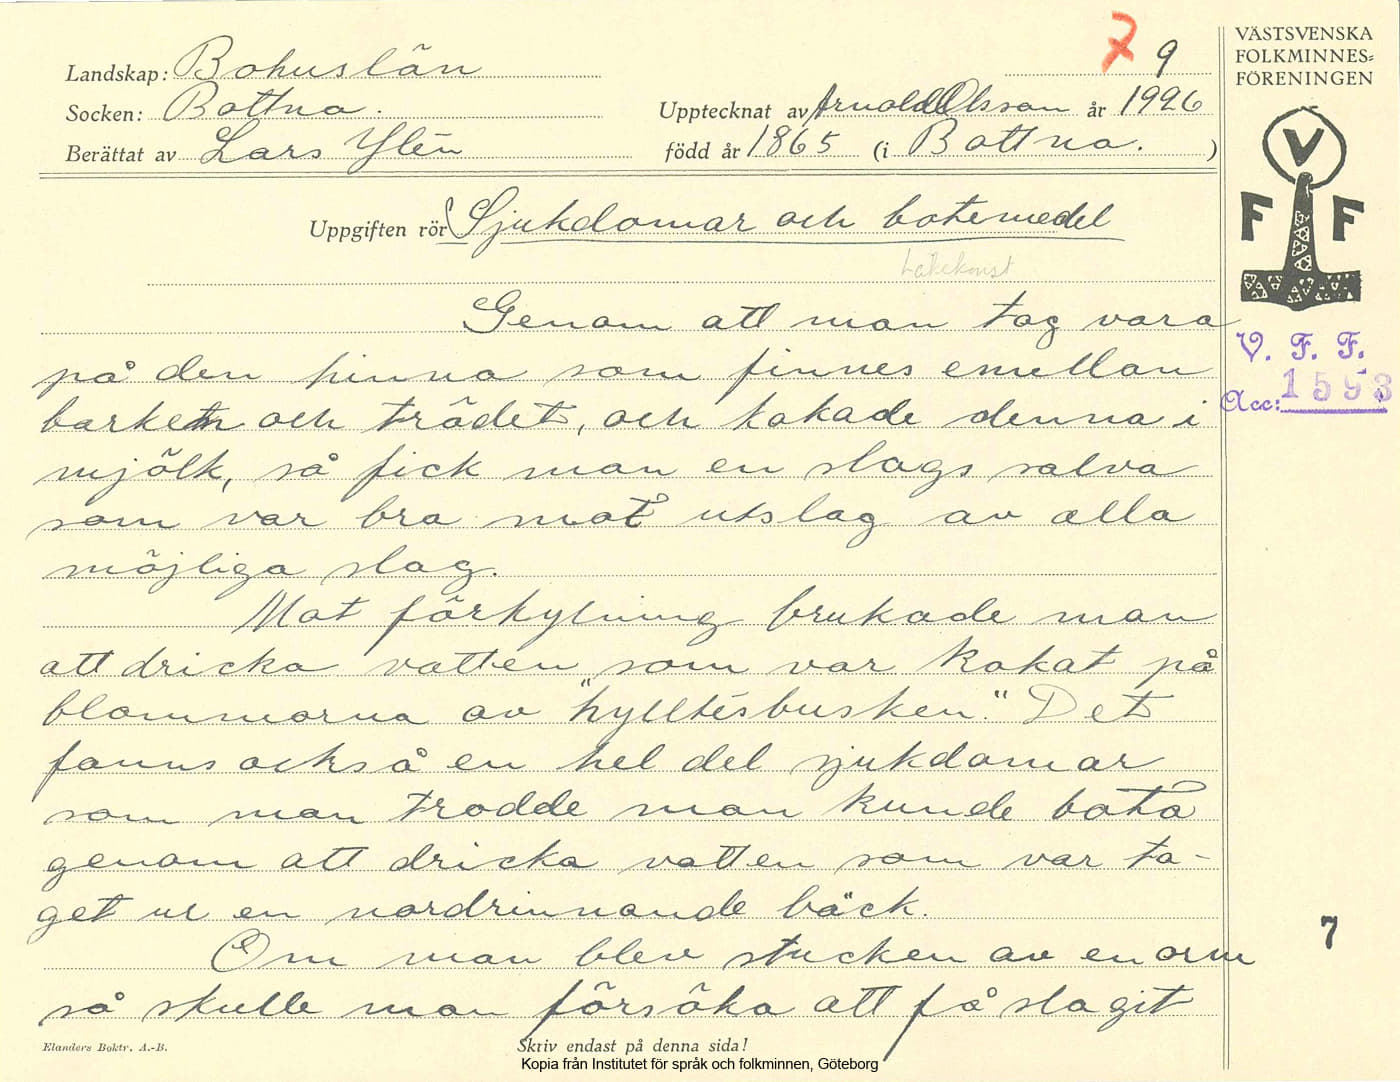 7 9
VÄSTSVENSKA
FOLKMINNES=
FÖRENINGEN
Landskap: Bohuslän
Socken: Bottna.
Upptecknat av Arnold Olsson år 1926
Berättat av Lars Ylén
född år 1865 (i Bottna.)
V
F F
Uppgiften rör Sjukdomar och botemedel
Läkekonst
Genom att man tog vara
på den hinna som finnes emellan
barken och trädet, och kokade denna i
mjölk, så fick man en slags salva
som var bra mot utslag av alla
möjliga slag.
Mot förkylning brukade man
att dricka vatten som var kokat på
blommorna av "hylltésbusken." Det
fanns också en hel del sjukdomar
som man trodde man kunde bota
genom att dricka vatten som var ta-
get ur en nordrinnande bäck.
Om man blev stucken av en orm
så skulle man försöka att få slagit
V. F. F.
Acc: 1593
7
Elanders Boktr. A.-B.
Skriv endast på denna sida!
Kopia från Institutet för språk och folkminnen, Göteborg